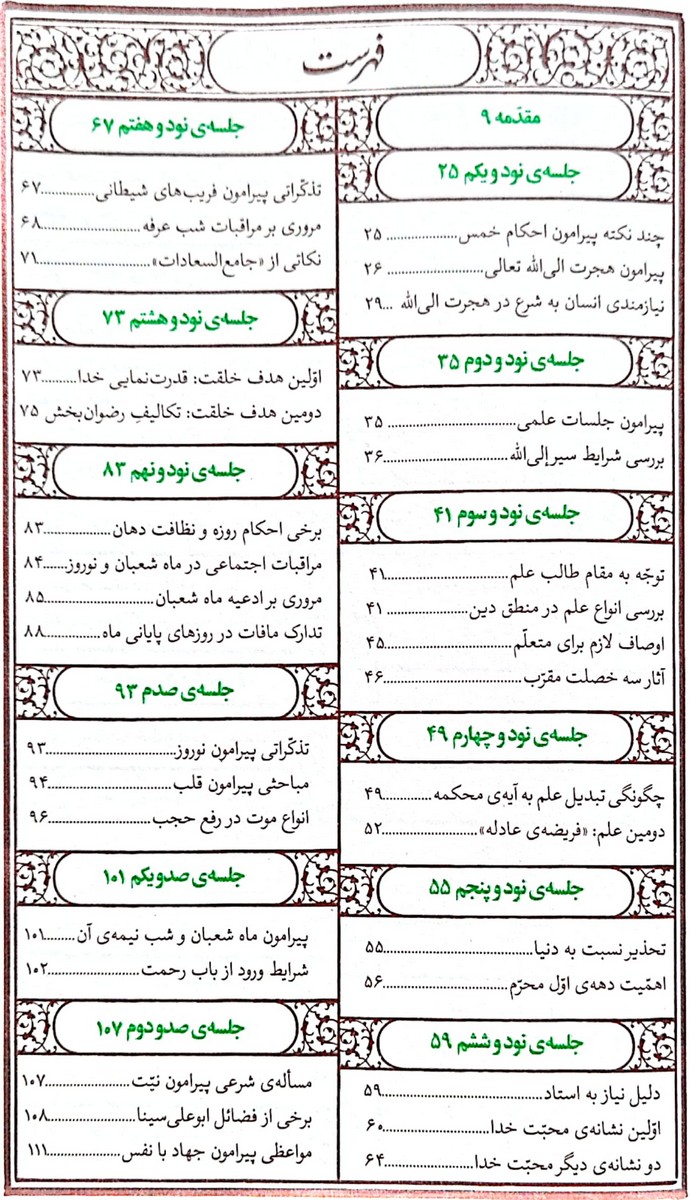 فهرست
مقدّمه ۹
جلسه‌ی نود و یکم ۲۵
چند نکته پیرامون احکام خمس.................... ۲۵
پیرامون هجرت الی‌الله تعالی.................... ۲۶
نیازمندی انسان به شرع در هجرت الی‌الله ...۲۹
جلسه‌ی نود و دوم ۳۵
پیرامون جلسات علمی.................... ۳۵
بررسی شرایط سیر إلی‌الله....................۳۶
جلسه‌ی نود و سوم ۴۱
توجّه به مقام طالب علم....................۴۱
بررسی انواع علم در منطق دین.................... ۴۱
اوصاف لازم برای متعلّم....................۴۵
آثار سه خصلت مقرّب....................۴۶
جلسه‌ی نود و چهارم ۴۹
چگونگی تبدیل علم به آیه‌ی محکمه ....................۴۹
دومین علم: «فریضه‌ی عادله»....................۵۲
جلسه‌ی نود و پنجم ۵۵
تحذیر نسبت به دنیا....................۵۵
اهمّیت دهه‌ی اوّل محرّم....................۵۶
جلسه‌ی نود و ششم ۵۹
دلیل نیاز به استاد....................۵۹
اوّلین نشانه‌ی محبّت خدا....................۶۰
دو نشانه‌ی دیگر محبّت خدا....................۶۴
جلسه‌ی نود و هفتم ۶۷
تذکّراتی پیرامون فریب‌های شیطانی....................۶۷
مروری بر مراقبات شب عرفه ....................۶۸
نکاتی از «جامع‌السعادات»....................۷۱
جلسه‌ی نود و هشتم ۷۳
اوّلین هدف خلقت: قدرت‌نمایی خدا.........۷۳
دومین هدف خلقت: تکالیفِ رضوان‌بخش ۷۵
جلسه‌ی نود و نهم ۸۳
برخی احکام روزه و نظافت دهان ....................۸۳
مراقبات اجتماعی در ماه شعبان و نوروز.......۸۴
مروری بر ادعیه ماه شعبان....................۸۵
تدارک مافات در روزهای پایانی ماه....................۸۸
جلسه‌ی صدم ۹۳
تذکّراتی پیرامون نوروز....................۹۳
مباحثی پیرامون قلب....................۹۴
انواع موت در رفع حجب....................۹۶
جلسه‌ی صد و یکم ۱۰۱
پیرامون ماه شعبان و شب نیمه‌ی آن.........۱۰۱
شرایط ورود از باب رحمت....................۱۰۲
جلسه‌ی صد و دوم ۱۰۷
مسأله‌ی شرعی پیرامون نیّت....................۱۰۷
برخی از فضائل ابوعلی‌سینا....................۱۰۸
مواعظی پیرامون جهاد با نفس....................۱۱۱